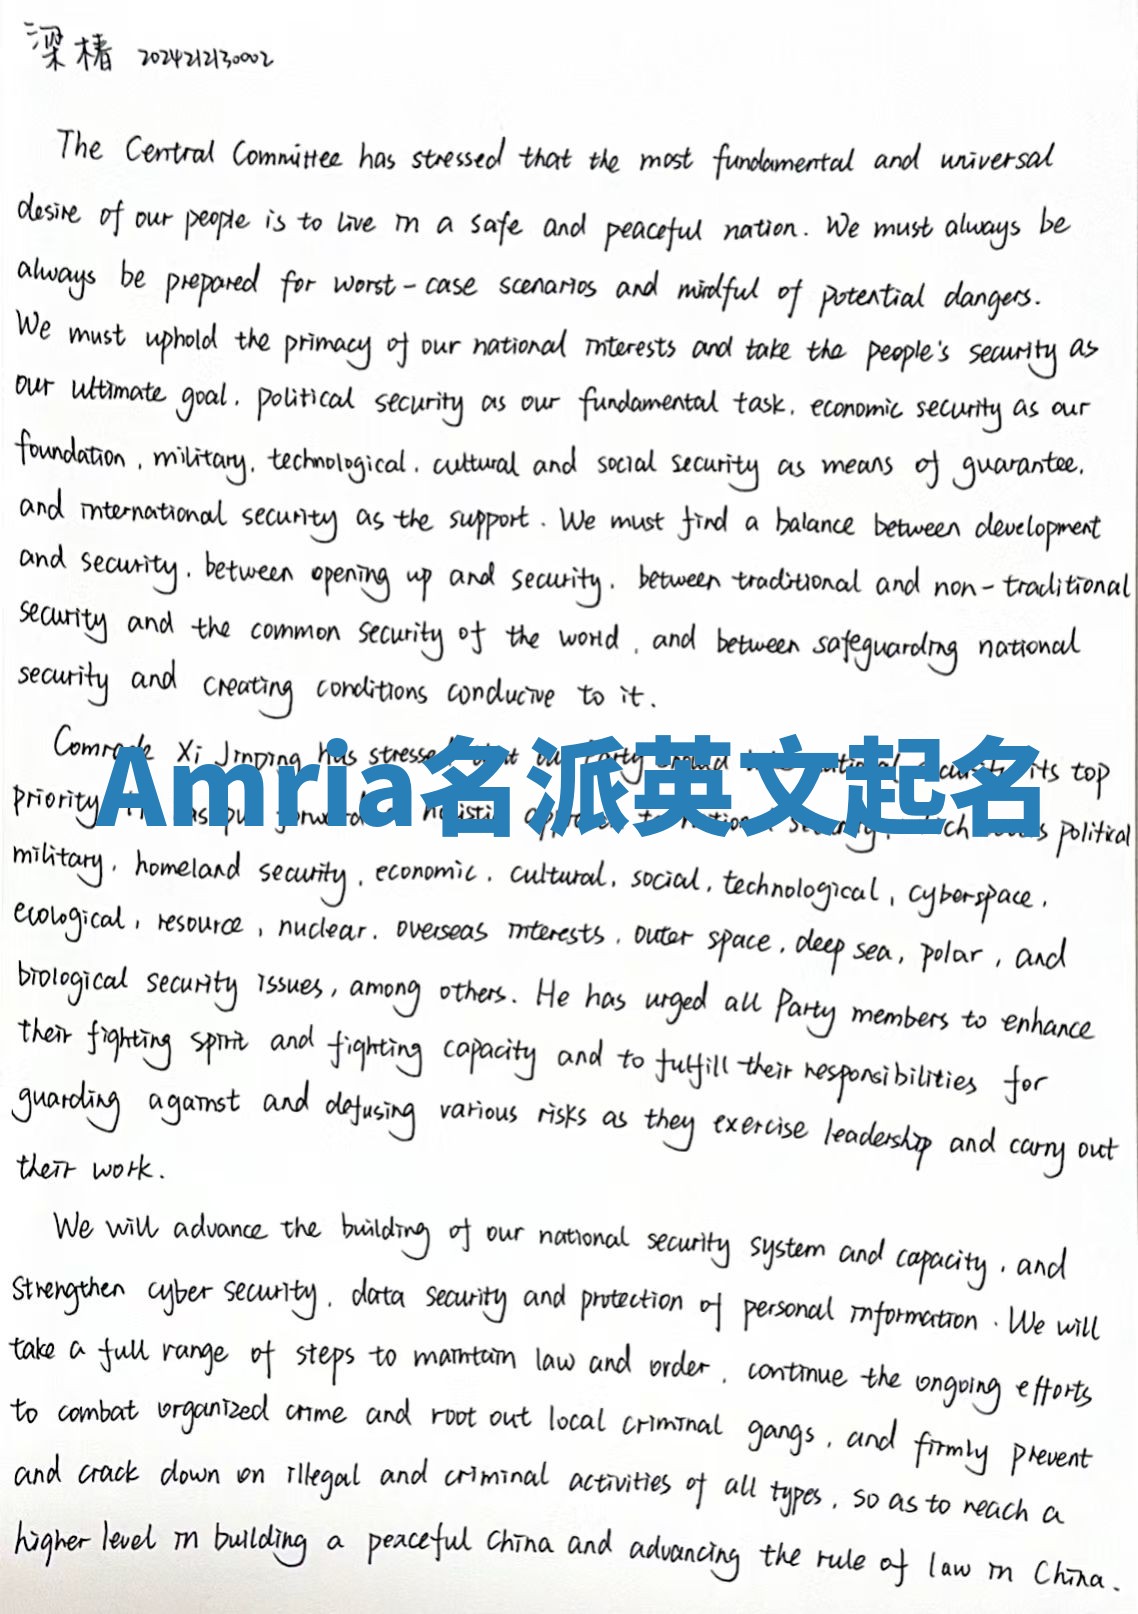 梁椿 2024212130002
The Central Committee has stressed that the most fundamental and universal
desire of our people is to live in a safe and peaceful nation. We must always be
always be prepared for worst-case scenarios and mindful of potential dangers.
We must uphold the primacy of our national interests and take the people's security as
our ultimate goal, political security as our fundamental task, economic security as our
foundation, military, technological, cultural and social security as means of guarantee,
and international security as the support. We must find a balance between development
and security, between opening up and security, between traditional and non-traditional
security and the common security of the world, and between safeguarding national
security and creating conditions conducive to it.
Comrade Xi Jinping has stressed that our Party its top
Amria名派英文起名
priority political
military, homeland security, economic, cultural, social, technological, cyberspace,
ecological, resource, nuclear, overseas interests, outer space, deep sea, polar, and
biological security issues, among others. He has urged all Party members to enhance
their fighting spirit and fighting capacity and to fulfill their responsibilities for
guarding against and defusing various risks as they exercise leadership and carry out
their work.
We will advance the building of our national security system and capacity, and
strengthen cyber security, data security and protection of personal information. We will
take a full range of steps to maintain law and order, continue the ongoing efforts
to combat organized crime and root out local criminal gangs, and firmly prevent
and crack down on illegal and criminal activities of all types, so as to reach a
higher level in building a peaceful China and advancing the rule of law in China.